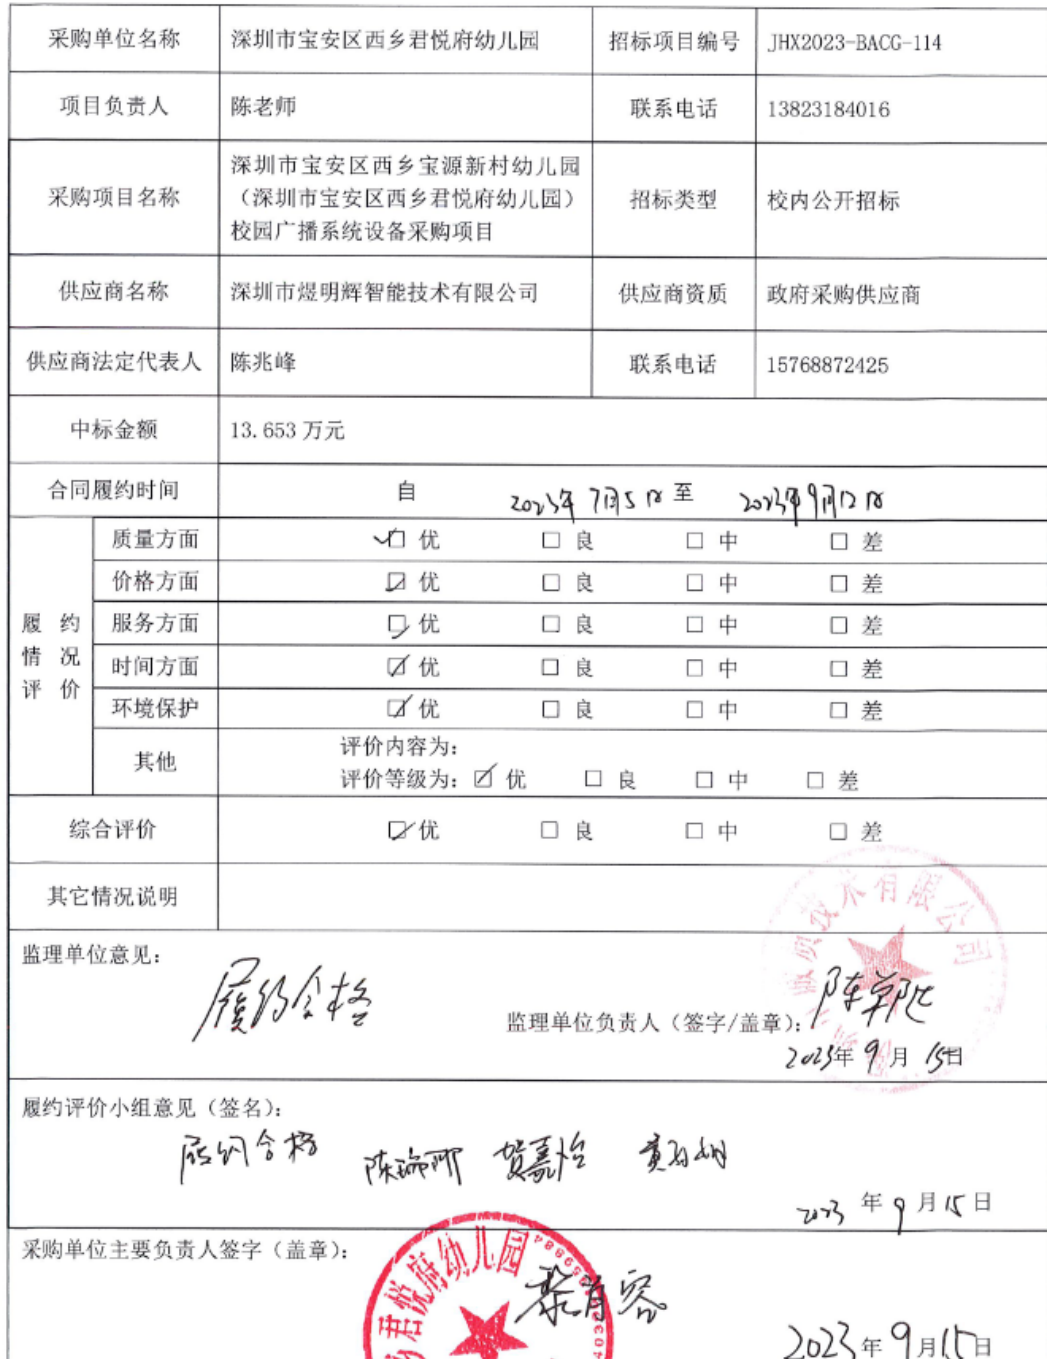 采购单位名称 深圳市宝安区西乡君悦府幼儿园 招标项目编号 JHX2023-BACG-114
项目负责人 陈老师 联系电话 13823184016
采购项目名称 深圳市宝安区西乡宝源新村幼儿园
（深圳市宝安区西乡君悦府幼儿园）
校园广播系统设备采购项目
招标类型 校内公开招标
供应商名称 深圳市煜明辉智能技术有限公司 供应商资质 政府采购供应商
供应商法定代表人 陈兆峰 联系电话 15768872425
中标金额 13.653 万元
合同履约时间 自 2023年7月5日 至 2023年9月12日
履约
情况
评价
质量方面 ☑ 优 □ 良 □ 中 □ 差
价格方面 ☑ 优 □ 良 □ 中 □ 差
服务方面 ☑ 优 □ 良 □ 中 □ 差
时间方面 ☑ 优 □ 良 □ 中 □ 差
环境保护 ☑ 优 □ 良 □ 中 □ 差
其他 评价内容为：
评价等级为：☑ 优 □ 良 □ 中 □ 差
综合评价 ☑ 优 □ 良 □ 中 □ 差
其它情况说明
技术有限公司
监理单位意见：
履约合格
监理单位负责人（签字/盖章）：
2023年 9月 15日
履约评价小组意见（签名）：
履约合格 贺嘉怡
2023 年 9 月 15 日
采购单位主要负责人签字（盖章）：
君悦府幼儿园
2023 年 9 月 15 日